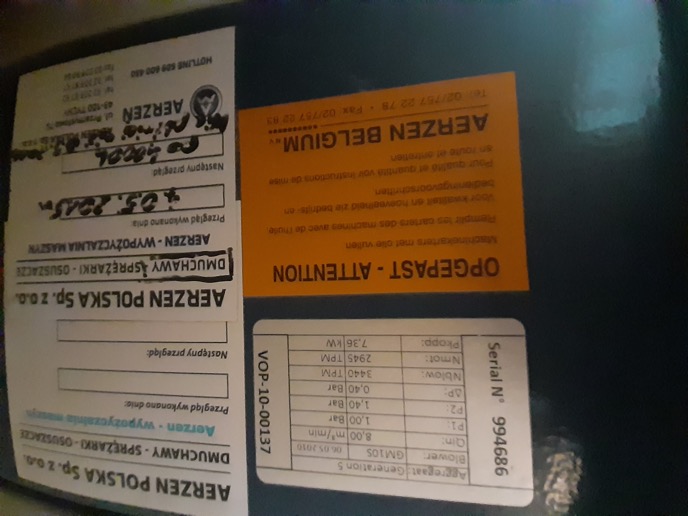 Serial N° 994686
Aggregaat: Generation 5
Blower: GM10S 06.05.2010
Qin: 8,00 m³/min
P1: 1,00 Bar
P2: 1,40 Bar
ΔP: 0,40 Bar
Nblow: 3440 TPM
Nmot: 2945 TPM
Pkopp: 7,36 kW
VOP-10-00137
OPGEPAST - ATTENTION
Machinekarters met olie vullen
Remplir les carters des machines avec de l'huile
Voor kwaliteit en hoeveelheid zie bedrijfs- en
bedieningsvoorschriften
Pour qualité et quantité voir instructions de mise
en route et entretien
AERZEN BELGIUM N.V.
Tel: 02/757 22 78 • Fax: 02/757 22 83
AERZEN POLSKA Sp. z o.o.
DMUCHAWY - SPRĘŻARKI - OSUSZACZE
Aerzen - wypożyczalnia maszyn
Przegląd wykonano dnia:
Następny przegląd:
AERZEN POLSKA Sp. z o.o.
DMUCHAWY SPRĘŻARKI - OSUSZACZE
AERZEN - WYPOŻYCZALNIA MASZYN
Przegląd wykonano dnia:
05.2015
Następny przegląd:
AERZEN POLSKA Sp. z o.o.
AERZEN
ul. Przemysłowa
43-100 TYCHY
HOTLINE 609 600 450